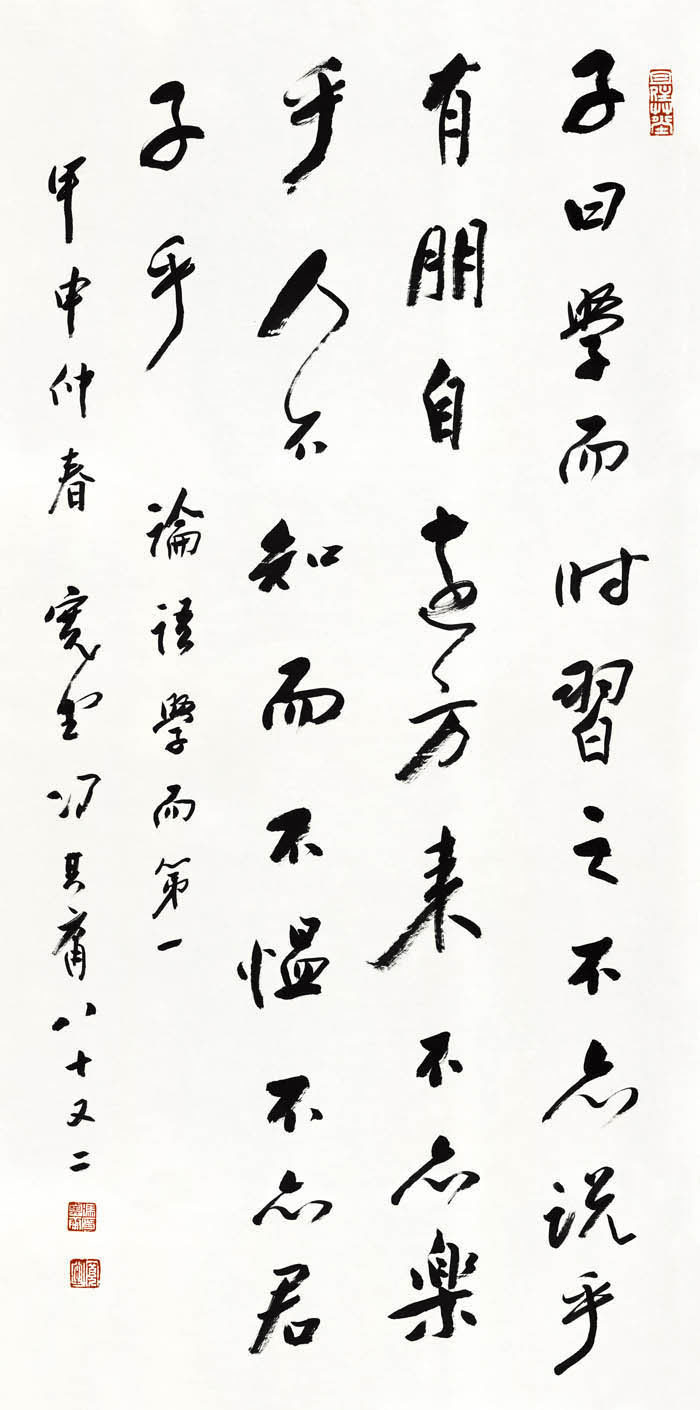 子曰學而时習之不亦说乎
有朋自遠方来不亦樂
乎人不知而不愠不亦君
子乎 論語學而第一
甲申仲春 寬堂冯其庸八十又二